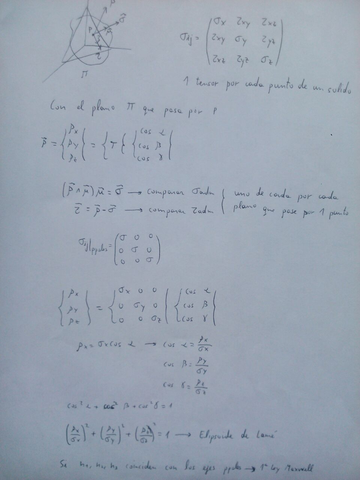 σij = (σx τxy τxz
τxy σy τyz
τxz τyz σz)
1 tensor por cada punto de un solido
Π
Con el plano Π que pasa por P
p̄ = {px py pz} = {T} {cos α cos β cos γ}
(p̄ ∧ μ̄) μ̄ = σ̄ → comparar σadm { uno de cada por cada
τ̄ = p̄ - σ̄ → comparar τadm { plano que pase por 1 punto
σij|pples = (σ 0 0
0 σ 0
0 0 σ)
{px py pz} = {σx 0 0
0 σy 0
0 0 σz} {cos α cos β cos γ}
px = σx cos α → cos α = px/σx
cos β = py/σy
cos γ = pz/σz
cos² α + cos² β + cos² γ = 1
(px/σx)² + (py/σy)² + (pz/σz)² = 1 → Elipsoide de Lamé
Si n1, n2, n3 coinciden con los ejes pples →